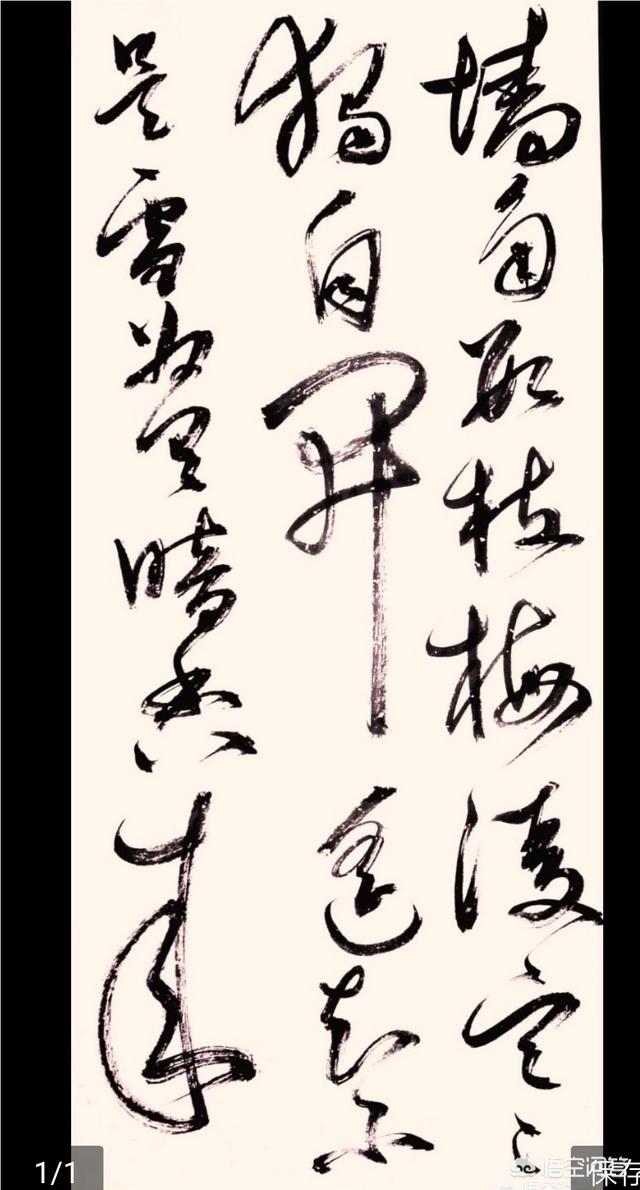 墙角数枝梅凌寒
独自开遥知不
是雪为有暗香来
1/1
悟空问答
保存